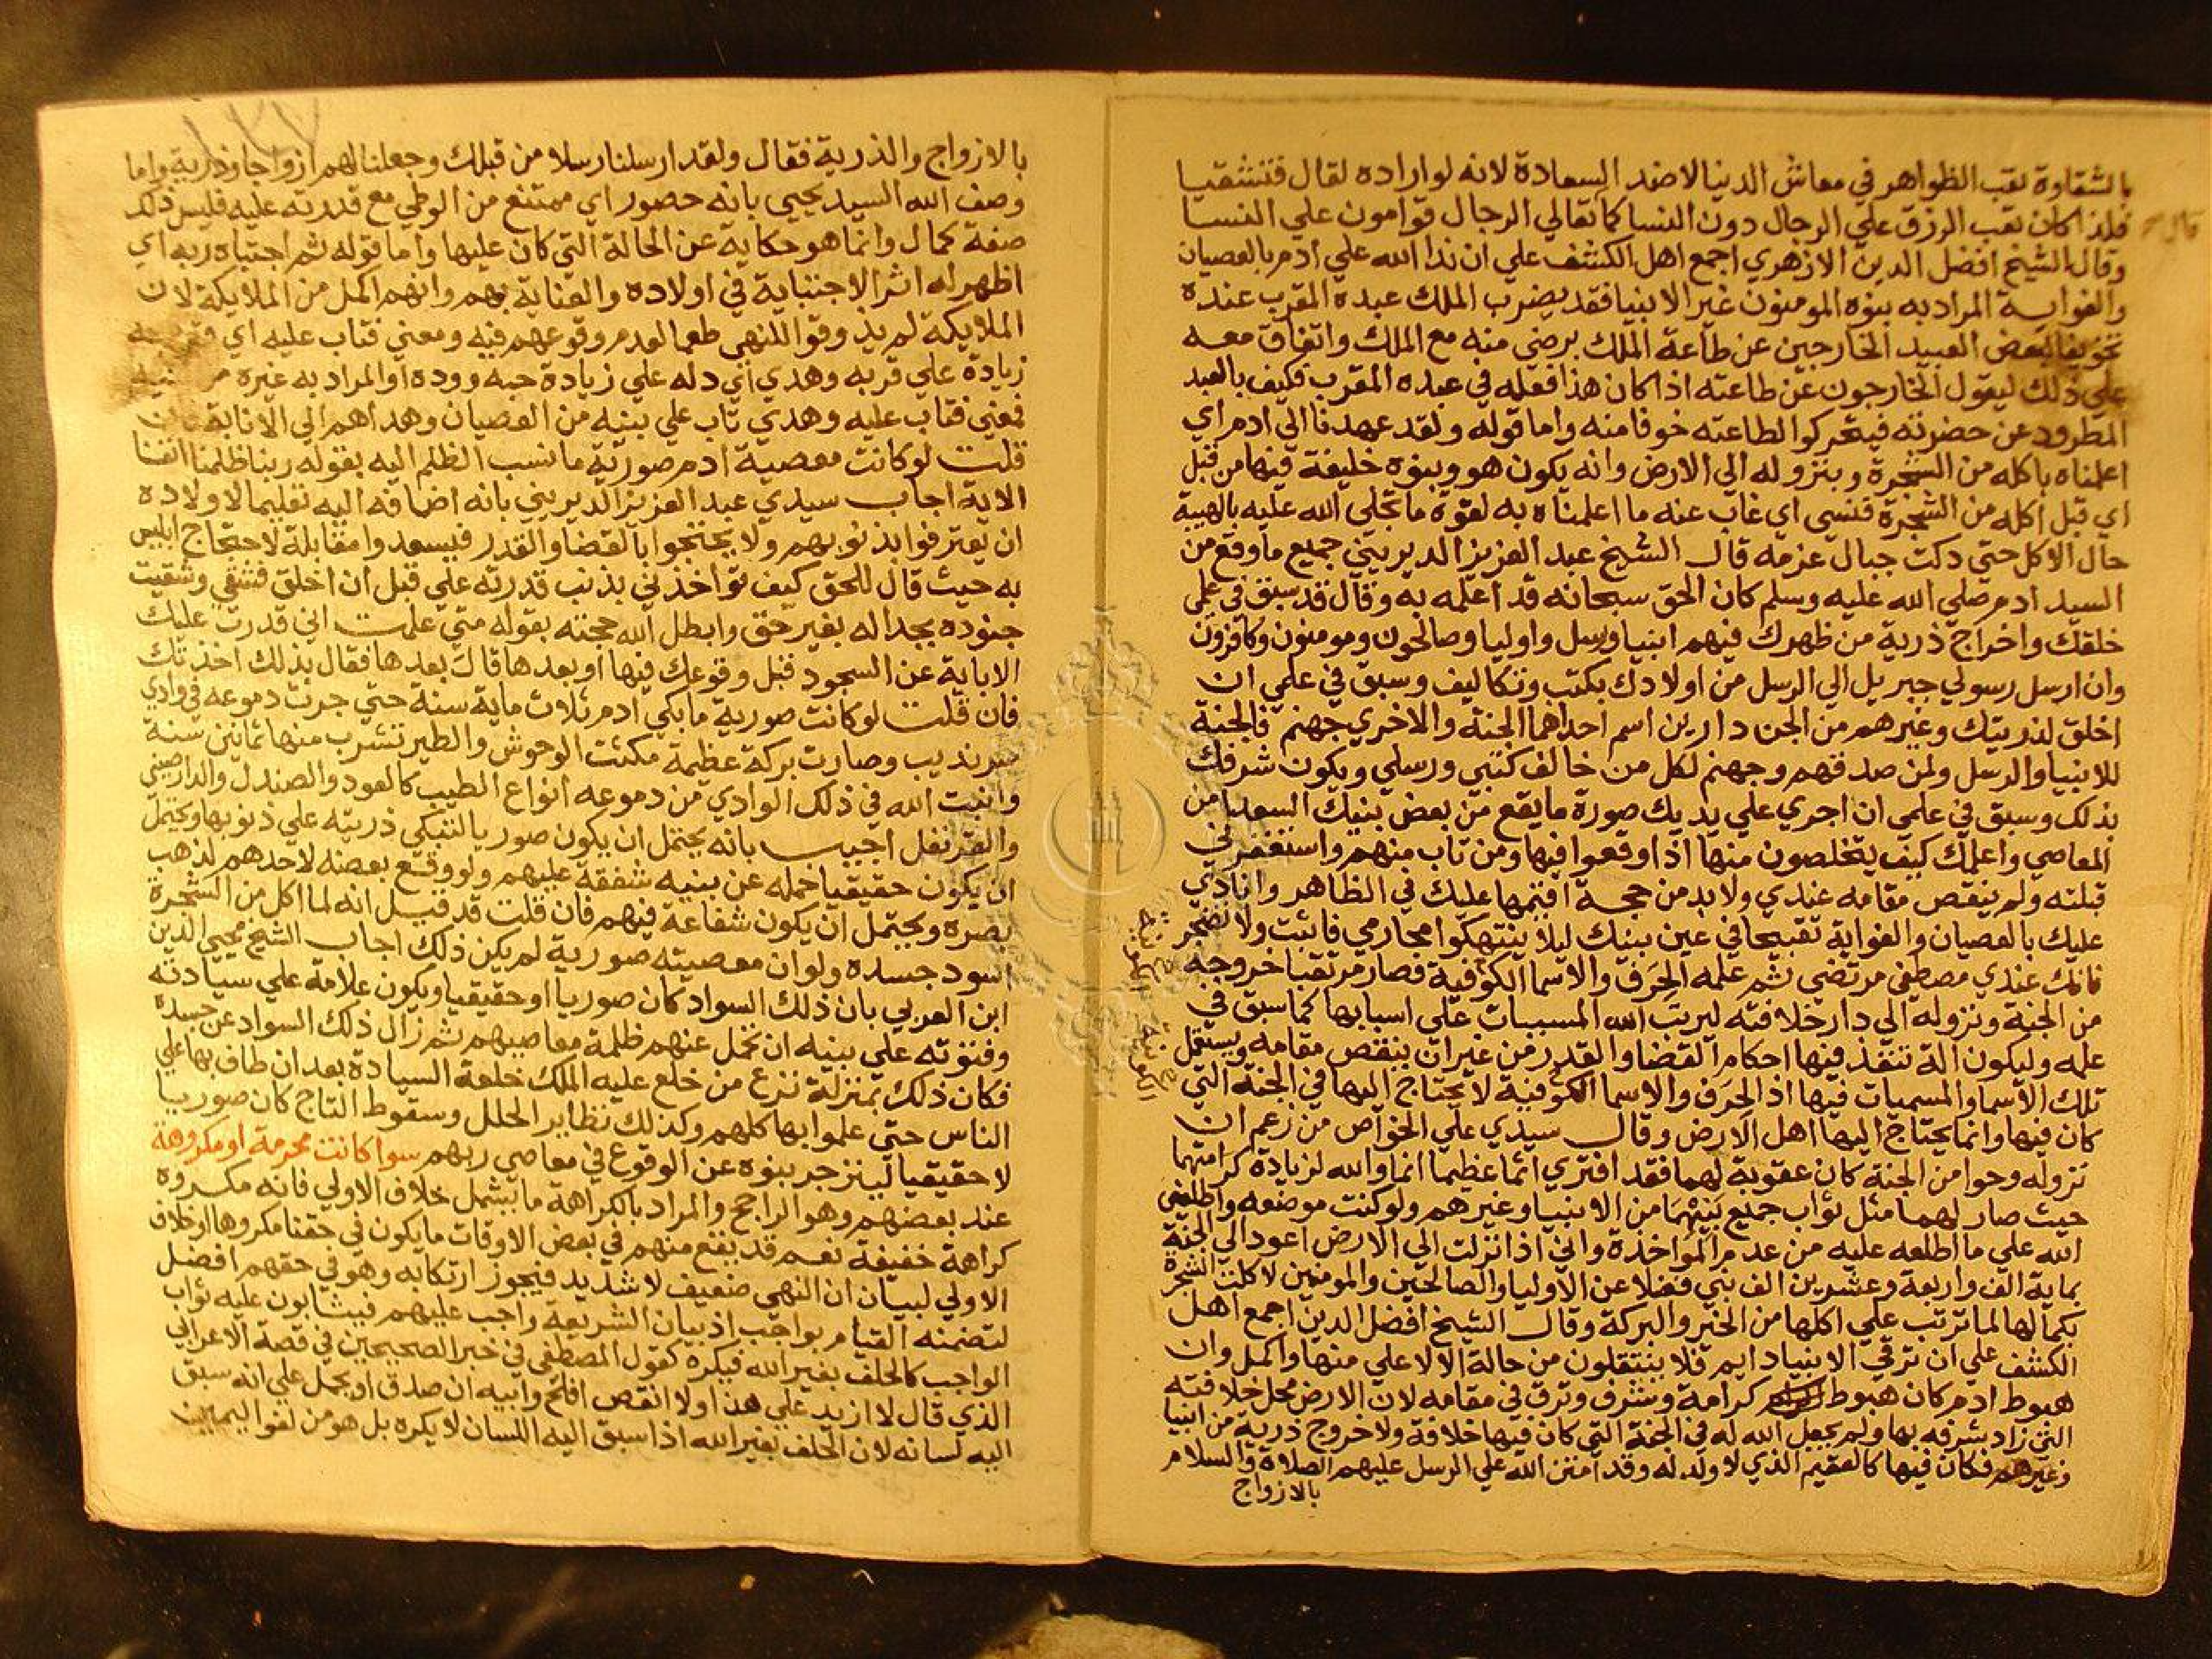 بالشقاوة تعب الظواهر في معاش الدنيا لا ضد السعادة لانه لو اراده لقال فتشقيا
فلذا كان تعب الرزق علي الرجال دون النسا كما تعالي الرجال قوامون علي النسا
قال
وقال الشيخ افضل الدين الازهري اجمع اهل الكشف علي ان ندا الله علي ادم بالعصيان
والغواية المراد به بنوه المومنون غير الانبيا فقد يضرب الملك عبده المقرب عنده
تخويفا لبعض العبيد الخارجين عن طاعة الملك برضي منه مع الملك واتفاق معه
علي ذلك ليقول الخارجون عن طاعته اذا كان هذا فعله في عبده المقرب فكيف بالعبد
المطرود عن حضرته فيتحركوا لطاعته خوفا منه واما قوله ولقد عهدنا الي ادم اي
اعلمناه باكله من الشجرة وبنزوله الي الارض وانه يكون هو وبنوه خليفة فيها من قبل
اي قبل اكله من الشجرة فنسي اي غاب عنه ما اعلمناه به لقوة ما تجلي الله عليه بالهيبة
حال الاكل حتي دكت جبال عزمه قال الشيخ عبد العزيز الديريني جميع ما وقع من
السيد ادم صلي الله عليه وسلم كان الحق سبحانه قد اعلمه به وقال قد سبق في علمي
خلقك واخراج ذرية من ظهرك فيهم انبيا ورسل واوليا وصالحون ومومنون وكافرون
وان ارسل رسولي جبريل الي الرسل من اولادك بكتب وتكاليف وسبق في علمي ان
اخلق لذريتك وغيرهم من الجن دارين اسم احداهما الجنة والاخري جهنم فالجنة
للانبيا والرسل ولمن صدقهم وجهنم لكل من خالف كتبي ورسلي ويكون شرفك
بذلك وسبق في علمي ان اجري علي يديك صورة ما يقع من بعض بنيك السعدا من
المعاصي واعلمك كيف يتخلصون منها اذا وقعوا فيها ومن تاب منهم واستغفرني
قبلته ولم ينقص مقامه عندي ولا بد من حجة اقيمها عليك في الظاهر وانادي
عليك بالعصيان والغواية تقبيحا في عين بنيك ليلا ينتهكوا محارمي فاثبت ولا تضجر
فانك عندي مصطفي مرتضي ثم علمه الحرف والاسما الكوفية فصار مرتقبا خروجه
من الجنة ونزوله الي دار خلافته ليرتب الله المسببات علي اسبابها كما سبق في
علمه وليكون الة تنفذ فيها احكام القضا والقدر من غير ان ينقص مقامه ويستعمل
تلك الاسما والمسميات فيها اذ الحرف والاسما الكوفية لا يحتاج اليها في الجنة التي
كان فيها وانما يحتاج اليها اهل الارض وقال سيدي علي الخواص من زعم ان
نزوله وحوا من الجنة كان عقوبة لهما فقد افتري اثما عظيما انما والله لزيادة كرامتهما
حيث صار لهما مثل ثواب جميع بنيهما من الانبيا وغيرهم ولو كنت موضعه واطلعني
الله علي ما اطلعه عليه من عدم المواخذة واني اذا نزلت الي الارض اعود الي الجنة
بماية الف واربعة وعشرين الف نبي فضلا عن الاوليا والصالحين والمومنين لاكلت الشجرة
بكمالها لما ترتب علي اكلها من الخير والبركة وقال الشيخ افضل الدين اجمع اهل
الكشف علي ان ترقي الانبيا دايم فلا ينتقلون من حالة الا لاعلي منها واكمل وان
هبوط ادم كان هبوط كرامة وشرف وترق في مقامه لان الارض محل خلافته
التي زاد شرفه بها ولم يجعل الله له في الجنة التي كان فيها خلافة ولا خروج ذرية من انبيا
وغيرهم فكان فيها كالعقيم الذي لا ولد له وقد امتن الله علي الرسل عليهم الصلاة والسلام
بالازواج
بالازواج والذرية فقال ولقد ارسلنا رسلا من قبلك وجعلنا لهم ازواجا وذرية واما
وصف الله السيد يحيي بانه حصور اي ممتنع من الوطي مع قدرته عليه فليس ذلك
صفة كمال وانما هو حكاية عن الحالة التي كان عليها واما قوله ثم اجتباه ربه اي
اظهر له اثر الاجتباية في اولاده والعناية بهم وانهم اكمل من الملايكة لان
الملايكة لم يذوقوا للنهي طعما لعدم وقوعهم فيه ومعني فتاب عليه اي
زيادة علي قربه وهدي اي دله علي زيادة حبه ووده او المراد به غيره من
فمعني فتاب عليه وهدي تاب علي بنيه من العصيان وهداهم الي الانابة فان
قلت لو كانت معصية ادم صورية ما نسب الظلم اليه بقوله ربنا ظلمنا انفسنا
الاية اجاب سيدي عبد العزيز الديريني بانه اضافه اليه تعليما لاولاده
ان يعترفوا بذنوبهم ولا يحتجوا بالقضا والقدر فيسعدوا مقابلة لاحتجاج ابليس
به حيث قال للحق كيف تواخذني بذنب قدرته علي قبل ان اخلق فشقي وشقيت
جنوده بجداله بغير حق وابطل الله حجته بقوله متي علمت اني قدرت عليك
الاباية عن السجود قبل وقوعك فيها او بعدها قال بعدها فقال بذلك اخذتك
فان قلت لو كانت صورية ما بكي ادم ثلاث ماية سنة حتي جرت دموعه في وادي
سرنديب وصارت بركة عظيمة مكثت الوحوش والطير تشرب منها ثمانين سنة
وانبت الله في ذلك الوادي من دموعه انواع الطيب كالعود والصندل والدارصيني
والقرنفل اجيب بانه يحتمل ان يكون صوريا لتبكي ذريته علي ذنوبها ويحتمل
ان يكون حقيقيا حمله عن بنيه شفقة عليهم ولو وقع بعضه لاحدهم لذهب
بصره ويحتمل ان يكون شفاعة فيهم فان قلت قد قيل انه لما اكل من الشجرة
اسود جسده ولو ان معصيته صورية لم يكن ذلك اجاب الشيخ محيي الدين
ابن العربي بان ذلك السواد كان صوريا او حقيقيا ويكون علامة علي سيادته
وفتوته علي بنيه ان تحمل عنهم ظلمة معاصيهم ثم زال ذلك السواد عن جسده
فكان ذلك بمنزلة نزع من خلع عليه الملك خلعة السيادة بعد ان طاف بها علي
الناس حتي علموا بها كلهم وكذلك نظاير الحلل وسقوط التاج كان صوريا
لا حقيقيا لينزجر بنوه عن الوقوع في معاصي ربهم سوا كانت محرمة او مكروهة
عند بعضهم وهو الراجح والمراد بالكراهة ما يشمل خلاف الاولي فانه مكروه
كراهة خفيفة نعم قد يقع منهم في بعض الاوقات ما يكون في حقنا مكروها او خلاف
الاولي لبيان ان النهي ضعيف لا شديد فيجوز ارتكابه وهو في حقهم افضل
لتضمنه القيام بواجب اذ بيان الشريعة واجب عليهم فيثابون عليه ثواب
الواجب كالحلف بغير الله فيكره كقول المصطفي في خبر الصحيحين في قصة الاعرابي
الذي قال لا ازيد علي هذا ولا انقص افلح وابيه ان صدق او يحمل علي انه سبق
اليه لسانه لان الحلف بغير الله اذا سبق اليه اللسان لا يكره بل هو من لغو اليمين